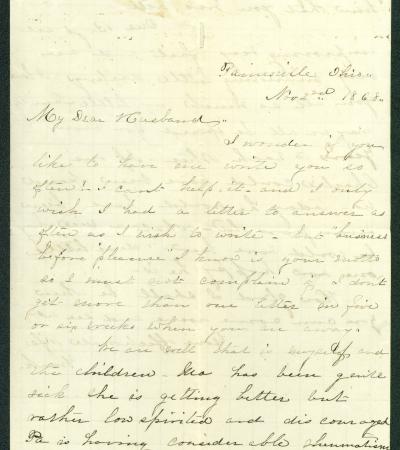 Painesville Ohio
Nov 22nd 1868
My Dear Husband
I wonder if you
like to have me write you so
often! I cant help it and I only
wish I had a letter to answer as
often as I wish to write - but "business
before pleasure" I know is your motto
so I must not complain if I don't
get more than one letter in five
or six weeks when you are away.
We are well that is myself and
the children - Ma has been quite
sick she is getting better but
rather low spirited and discouraged
Pa is having considerable rheumatism